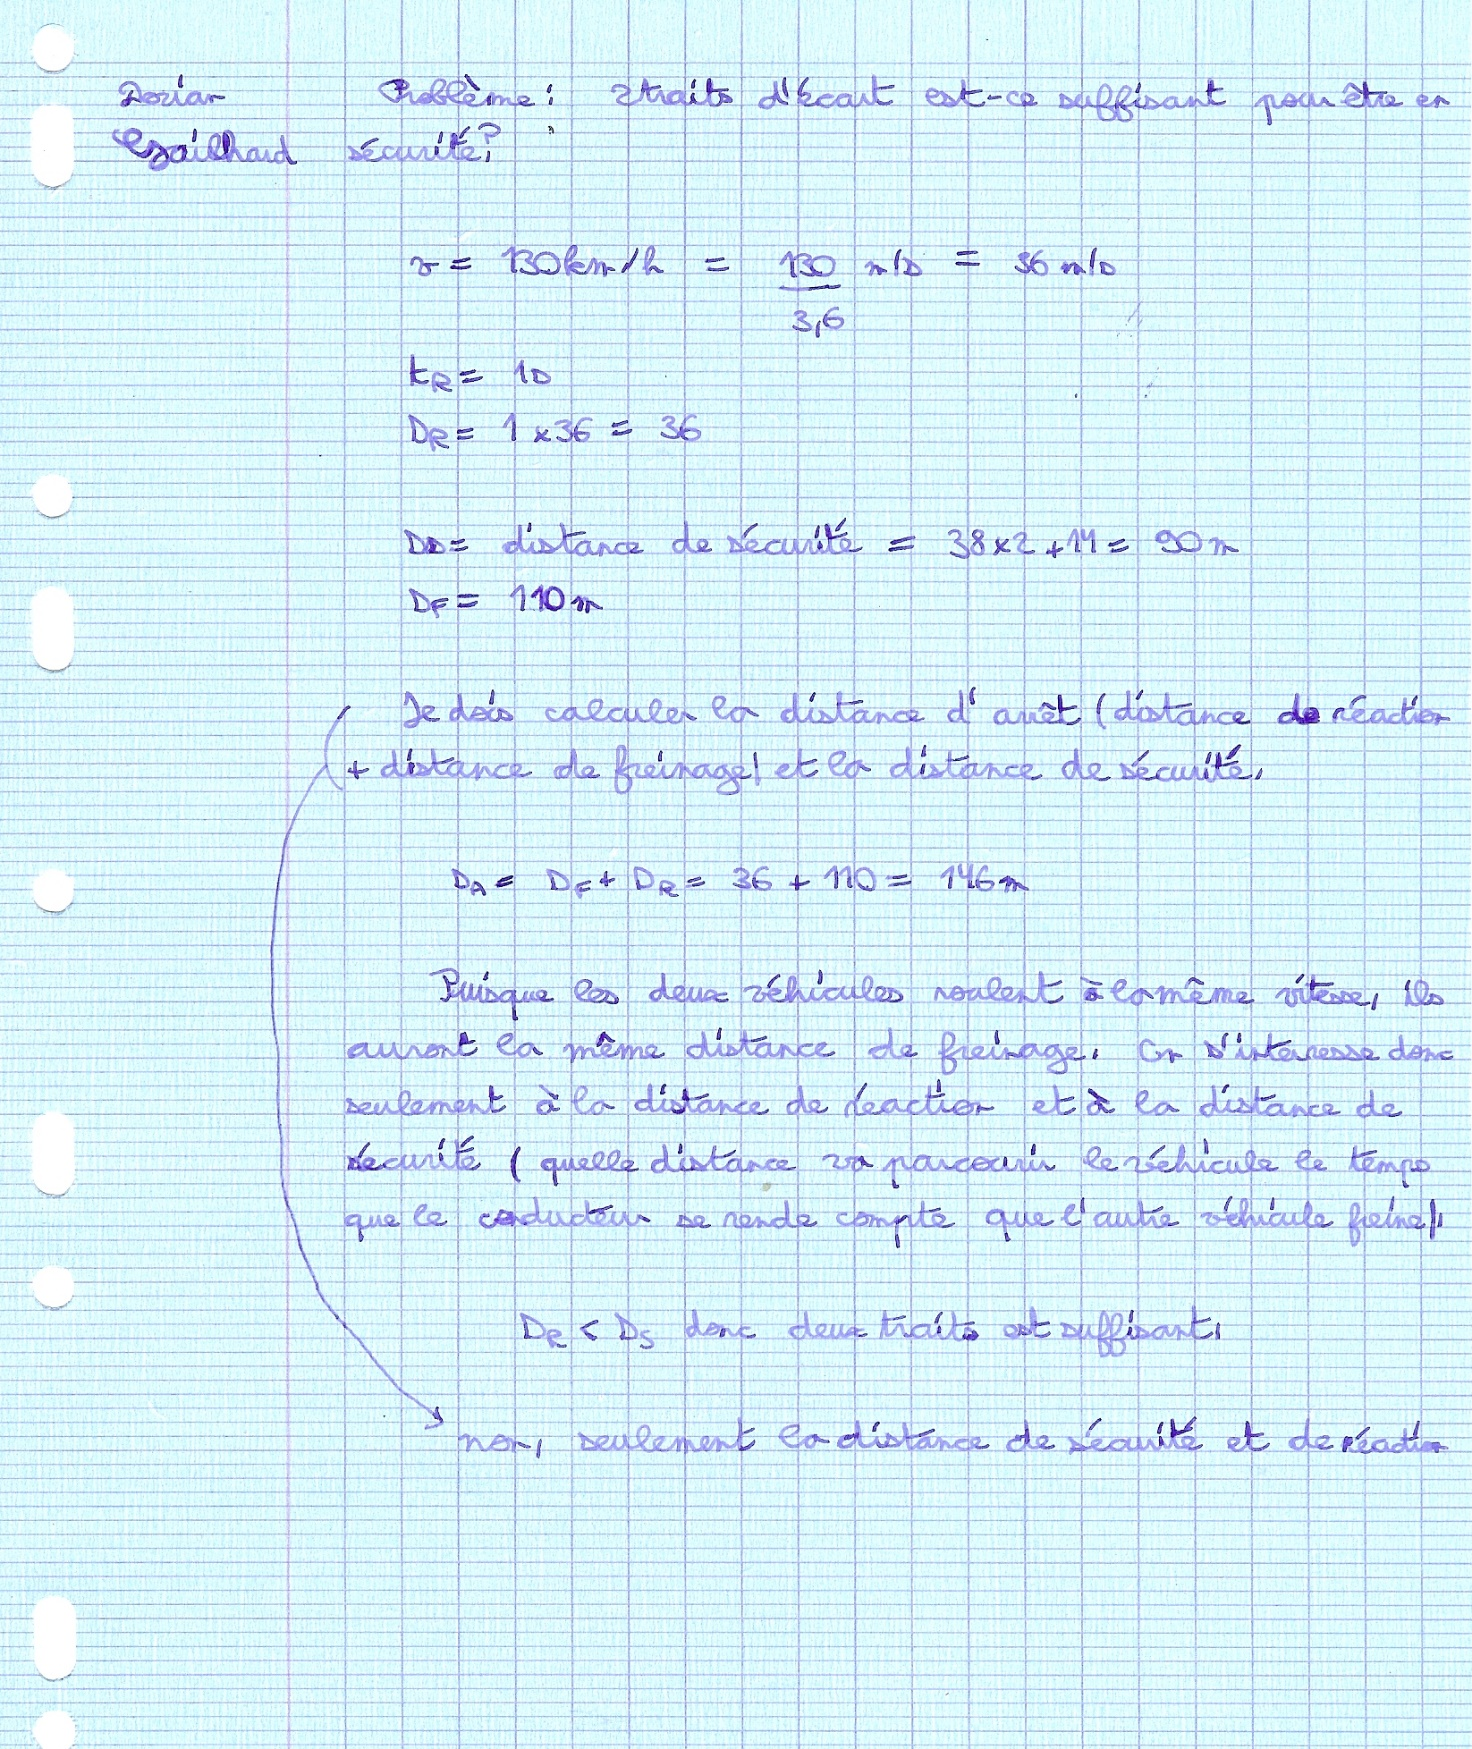 Dorian Problème : 2 traits d'écart est-ce suffisant pour être en
Gailhard sécurité ?
v = 130 km/h = 130/3,6 m/s = 36 m/s
tR = 1s
DR = 1 x 36 = 36
Ds = distance de sécurité = 38x2 + 14 = 90 m
DF = 110 m
Je dois calculer la distance d'arrêt (distance de réaction
+ distance de freinage) et la distance de sécurité.
DA = DF + DR = 36 + 110 = 146 m
Puisque les deux véhicules roulent à la même vitesse, ils
auront la même distance de freinage. On s'intéresse donc
seulement à la distance de réaction et à la distance de
sécurité (quelle distance va parcourir le véhicule le temps
que le conducteur se rende compte que l'autre véhicule freine).
DR < DS donc deux traits est suffisant.
non, seulement la distance de sécurité et de réaction